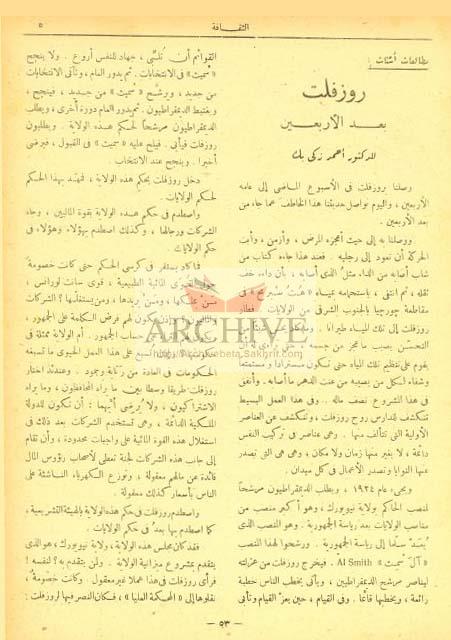 الثقافة
٥
مطالعات أشتات :
روزفلت
بعد الأربعين
للدكتور أحمد زكى بك
وصلنا بروزفلت فى الأسبوع الماضى إلى عامه
الأربعين ، واليوم نواصل حديثنا هذا الخاطف عما جاء من
بعد الأربعين .
ووصلنا به إلى حيث أعجزه المرض ، وأزمن ، وأبت
الحركة أن تعود إلى رجليه . فعند هذا جاءه كتاب من
شاب أصابه من الداء مثل الذى أصابه ، بأن داءه خف
ثقله ، ثم انتفى ، باستحمامه بمياه
مقاطعة چورچيا بالجنوب الشرقى من الولايات . فطار
روزفلت إلى تلك المياه طيرانا .
التحسن بصيب ما عجز من جسمه
يقوم على تنظيم تلك المياه حتى تكون مستزادا ومستمتعا
وشفاء لكل من يصيبه من عنت الدهر ما أصابه . وأنفق
فى هذا المشروع نصف ماله .. وفى هذا العمل البسيط
تتكشف للدارس روح روزفلت ، وتتكشف عن العناصر
الأولية التى تتألف منها . وهى عناصر فى تركيب النفس
دائمة ، لا يغير منها زمان ولا مكان ، وهى هى التى تصدر
عنها النوايا وتصدر الأعمال فى كل ميدان .
ويجىء عام ١٩٢٤ ، ويطلب الديمقراطيون مرشحاً
لمنصب الحاكم بولاية نيويورك ، وهو أكبر منصب من
مناصب الولايات بعد رياسة الجمهورية . وهو المنصب الذى
يُعَدّ سلّما إلى رياسة الجمهورية . ورشحوا لهذا المنصب
« آل سْمِيث » Al Smith . فيخرج روزفلت من عزلته
ليناصر مرشح الديمقراطيين ، ويأبى بخطب الناس خطبة
رائعة ، ويخطبها قائماً . وفى القيام ، حين يعزّ القيام وتأبى
القوائم أن تُلبى ، جهاد للنفس أروع . ولا ينجح
« سميث » فى الانتخابات . ثم يدور العام ، وتأتى الانتخابات
من جديد ، ويرشح « سميث » من جديد ، فينجح
ويغتبط الديمقراطيون . ثم يدور العام دورة أخرى ، ويطلب
الديمقراطيون مرشحاً لحكم هذه الولاية . ويطلبون
روزفلت فيأبى . فيلح عليه « سميث » فى القبول ، فيرضى
أخيرا . وينجح عند الانتخاب .
دخل روزفلت بحكم هذه الولاية ، فمهد بهذا الحكم
لحكم الولايات .
واصطدم فى حكم هذه الولاية بقوة الماليين ، وجاه
الشركات ورجالها ، وكذلك اصطدم بهؤلاء وهؤلاء فى
حكم الولايات .
فما كاد يستقر فى كرسى الحكم حتى كانت خصومة
حول القوى المائية الطبيعية ، قوى سانت لورانس ،
ومن يستغلها ؟ الشركات
أم الولاية ممثلة فى
على هذا العمل الحيوى ما تسبغه
الحكومات فى العادة من رتابة وجمود . وعندئذ اختار
روزفلت طريقا وسطا بين ما يراه المحافظون ، وما يراه
الاشتراكيون ، ولا يُرضى أيّهما : أن تكون للدولة
الملكية الدائمة ، وهى تستخدم الشركات بعد ذلك فى
استغلال هذه القوة المائية على واجبات محدودة ، وأن تقام
إلى جانب هذه الشركات لجنة تعطى لأصحاب رؤوس المال
فائدة عن مالهم معقولة ، وتوزع الكهرباء الناشئة على
الناس بأسعار كذلك معقولة .
واصطدم روزفلت فى حكم هذه الولاية بالهيئة التشريعية ،
كما اصطدم بها بعدُ فى حكم الولايات .
فقد كان مجلس هذه الولاية ، ولاية نيويورك ، هو الذى
يتقدم بمشروع ميزانية الولاية . ولمن يتقدم به ؟ لنفسه !
فرأى روزفلت فى هذا عملا غير معقول . وكانت خصومةٌ
نقلوها إلى « المحكمة العليا » ، فكان النصر فيها لروزفلت :
ARCHIVE
http://Archivebeta.Sakhrit.com
— ٥٣ —